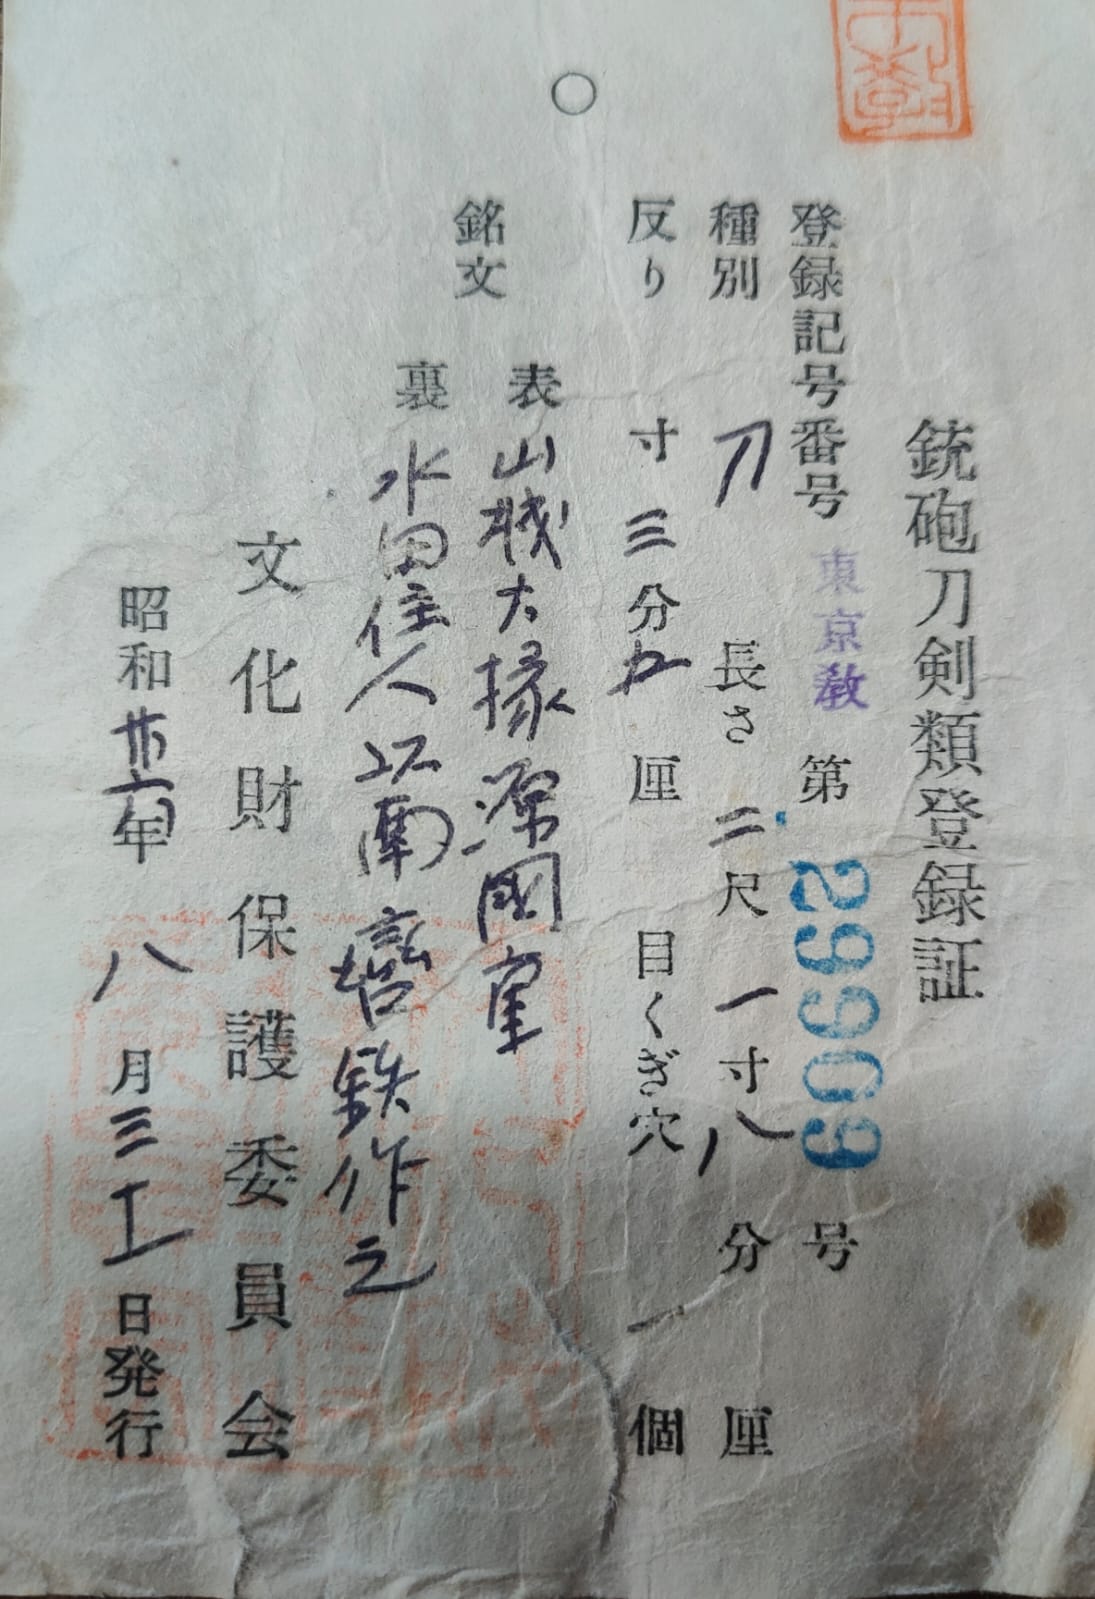 銃砲刀剣類登録証
登録記号番号 東京教 第 29909 号
種別 刀 長さ 二尺 一寸 八分 厘
反り 寸 三分 五厘 目くぎ穴 一個
銘文
表 山城大掾源國重
裏 水田住人以南蛮鉄作之
文化財保護委員会
昭和 年 八月 三 日発行